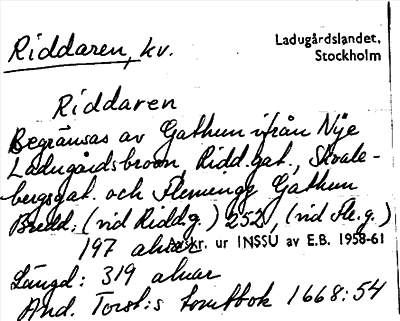 Riddaren, kv.
Ladugårdslandet,
Stockholm
Riddaren
Begränsas av Gathun ifrån Nye
Ladugårdsbroon, Ridd.gat., Skvale-
bergsgat. och Flemingz Gathun
Bredd: (vid Riddg.) 252, (vid Fle.g.)
197 alnar
Avskr. ur INSSU av E.B. 1958-61
Längd: 319 alnar
And. Torst:s tomtbok 1668:54